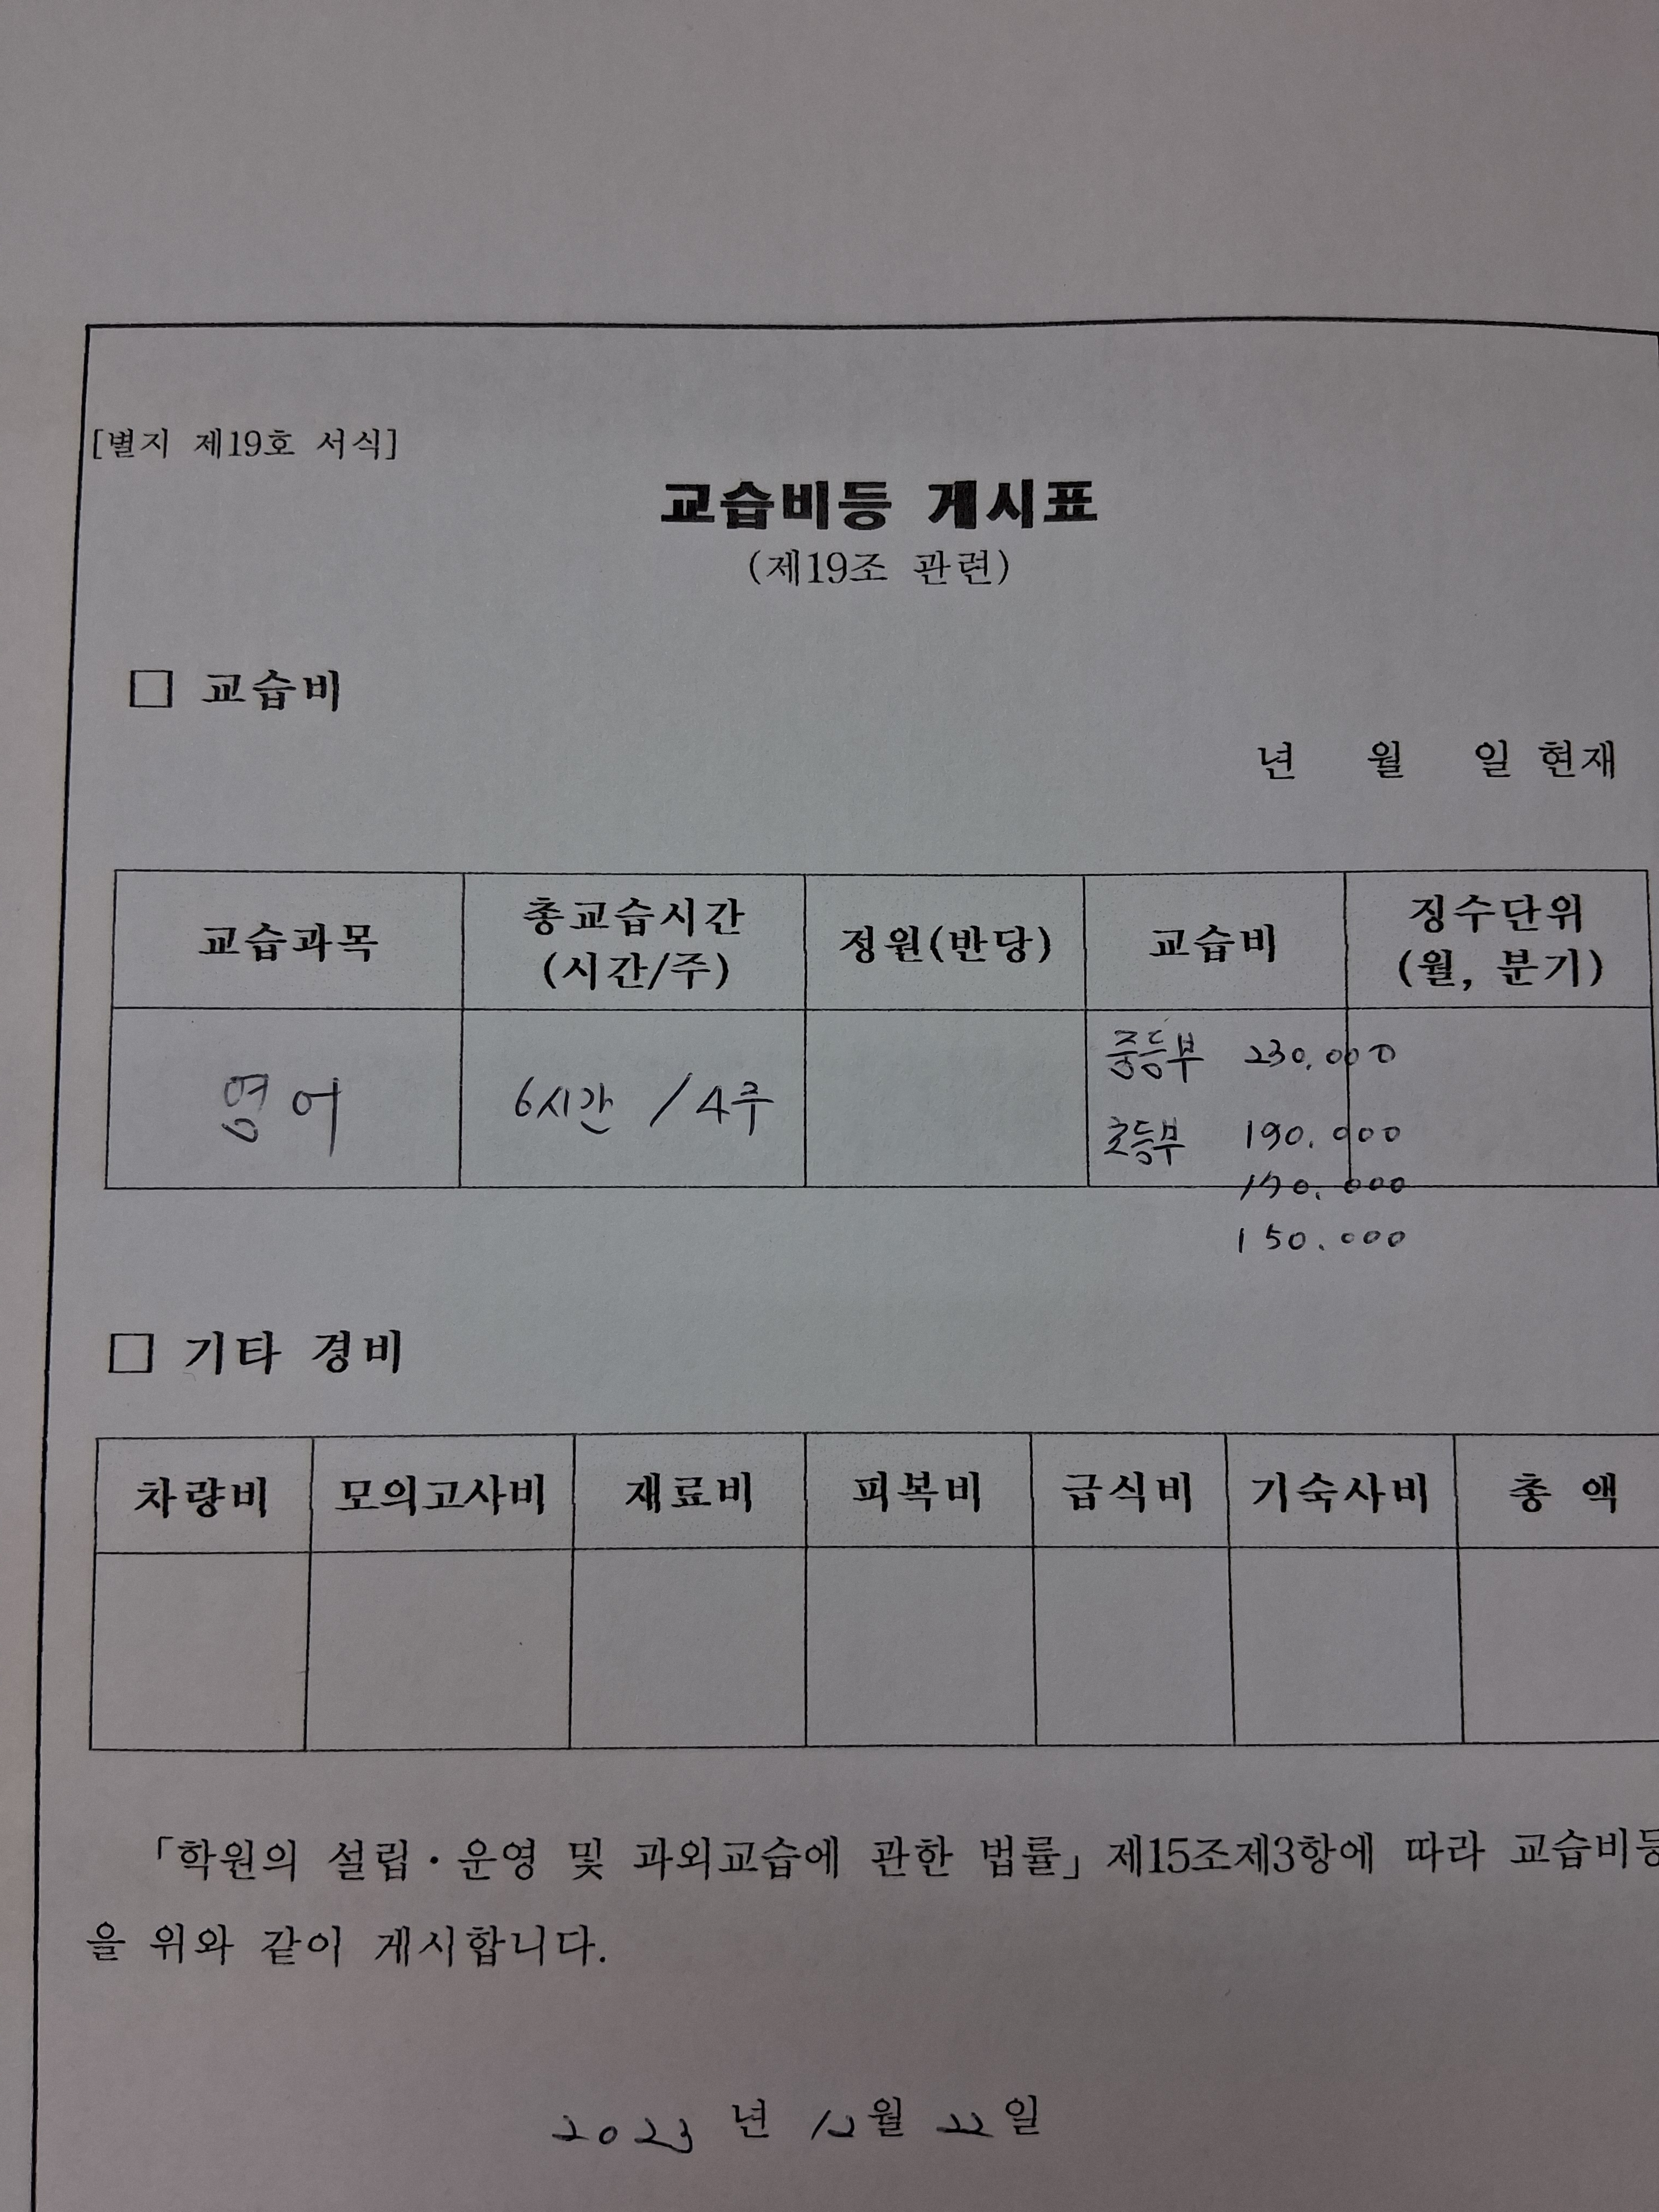 [별지 제19호 서식]
교습비등 게시표
(제19조 관련)
□ 교습비
년 월 일 현재
교습과목 총교습시간 (시간/주) 정원(반당) 교습비 징수단위 (월, 분기)
영어 6시간 / 4주 중등부 230.000
초등부 190.000
170.000
150.000
□ 기타 경비
차량비 모의고사비 재료비 피복비 급식비 기숙사비 총 액
「학원의 설립·운영 및 과외교습에 관한 법률」제15조제3항에 따라 교습비등
을 위와 같이 게시합니다.
2023 년 12월 22일